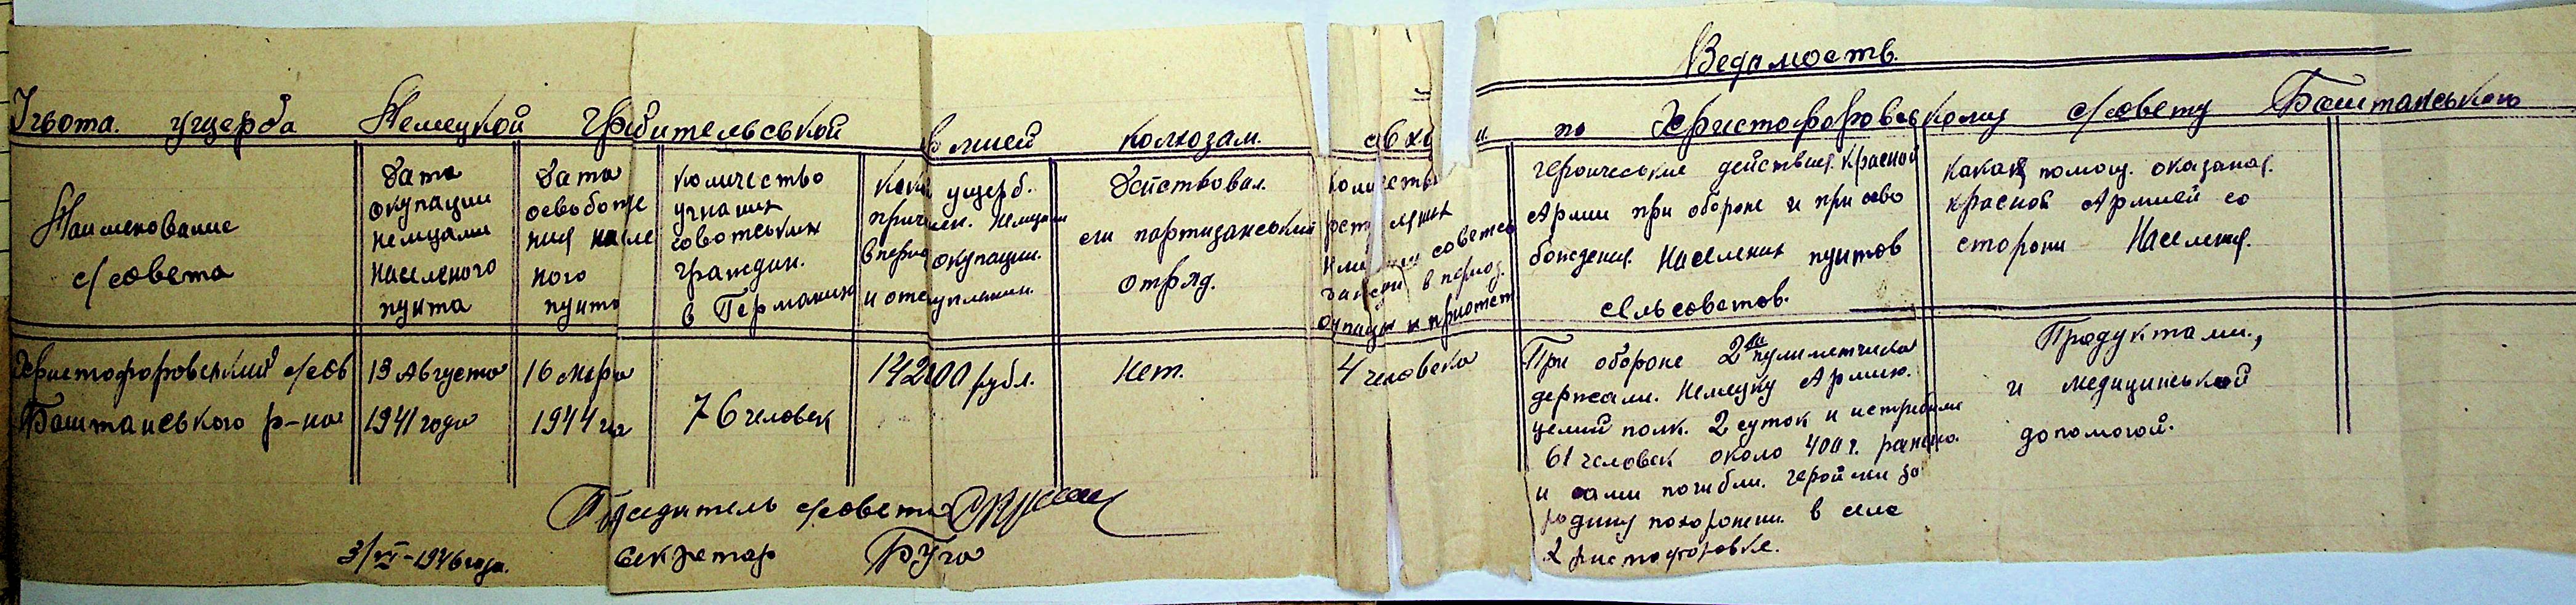 Ведамость.
Учьота. ущерба Немецкой грабительськой колхозам. по Христофоровському с/совету Баштанського
Наименование
с/совета
Дата
окупации
немцами
населеного
пункта
Дата
освобожде
ния населе
ного
пункта
количество
угнаних
советських
граждан.
в Германию
ущерб.
причинен. немцами
в период окупации.
и отступлении.
Действовал.
партизанський
отряд.
количество
советс
в период
героические действия. Красной
Армии при обороне и при осво
бождения. населених пунктов
сельсоветов.
Какая помощ. оказана.
красной Армией со
сторони населения.
Христофоровский с/сов
Баштанського р-на
13 Августа
1941 года
16 мара
1944 га
76 человек
142200 рубл.
Нет.
4 человека
При обороне 2ва пулиметчика
держали. Немецку Армию.
целий полк. 2 суток и истребили
61 человек около 400 г. ранено.
и сами погибли. геройми за
родину похоронени. в селе
Христофоровке.
Продуктами.,
и медицинськой
допомогой.
Председатель с/совета
3/VI-1946 года. секретар Буга